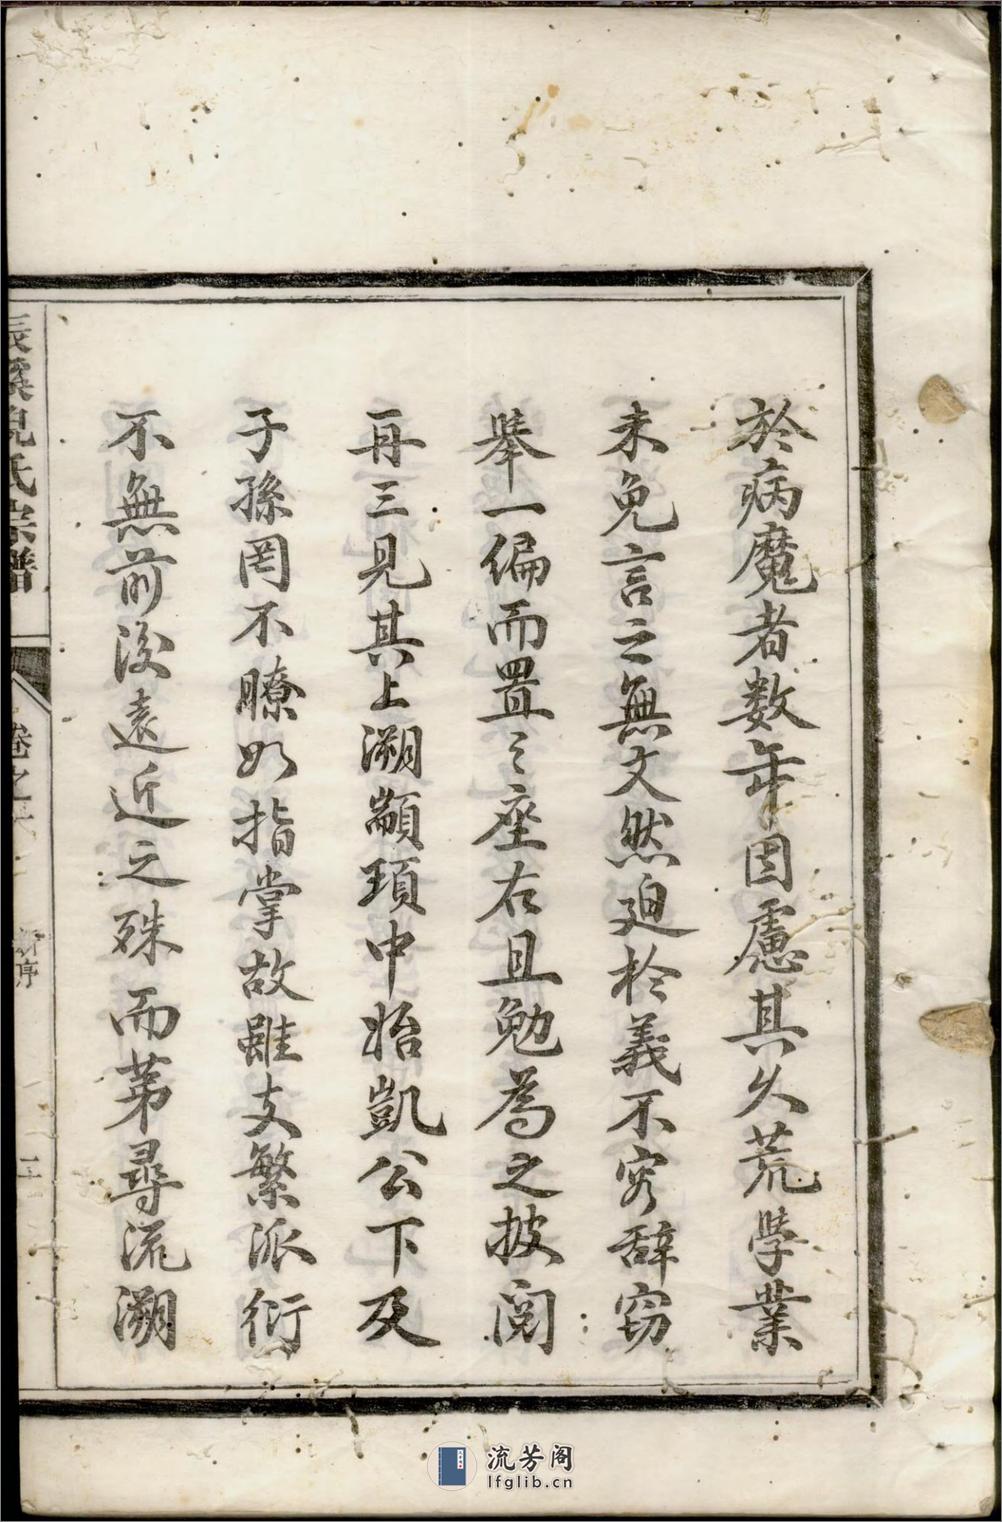 於病魔者数年因慮其久荒學業
未免言之無文然迫於義不容辞窃
舉一偏而置之座右且勉為之披閱
再三見其上溯顓頊中始凱公下及
子孫罔不瞭如指掌故雖支繁派衍
不無前後遠近之殊而苐尋流溯
氏宗譜
卷之
序
流芳阁
lfglib.cn